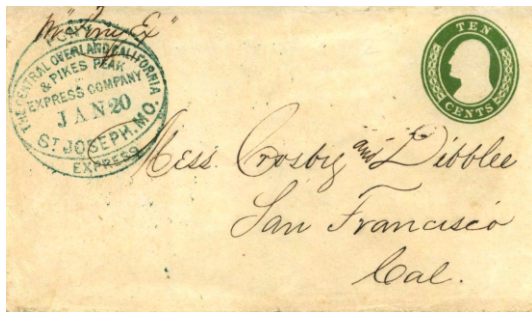 "Pony Ex"
PONY
THE CENTRAL OVERLAND CALIFORNIA
& PIKES PEAK
EXPRESS COMPANY
JAN 20
ST JOSEPH, MO.
EXPRESS
TEN
CENTS
Mess. Crosby and Dibblee
San Francisco
Cal.